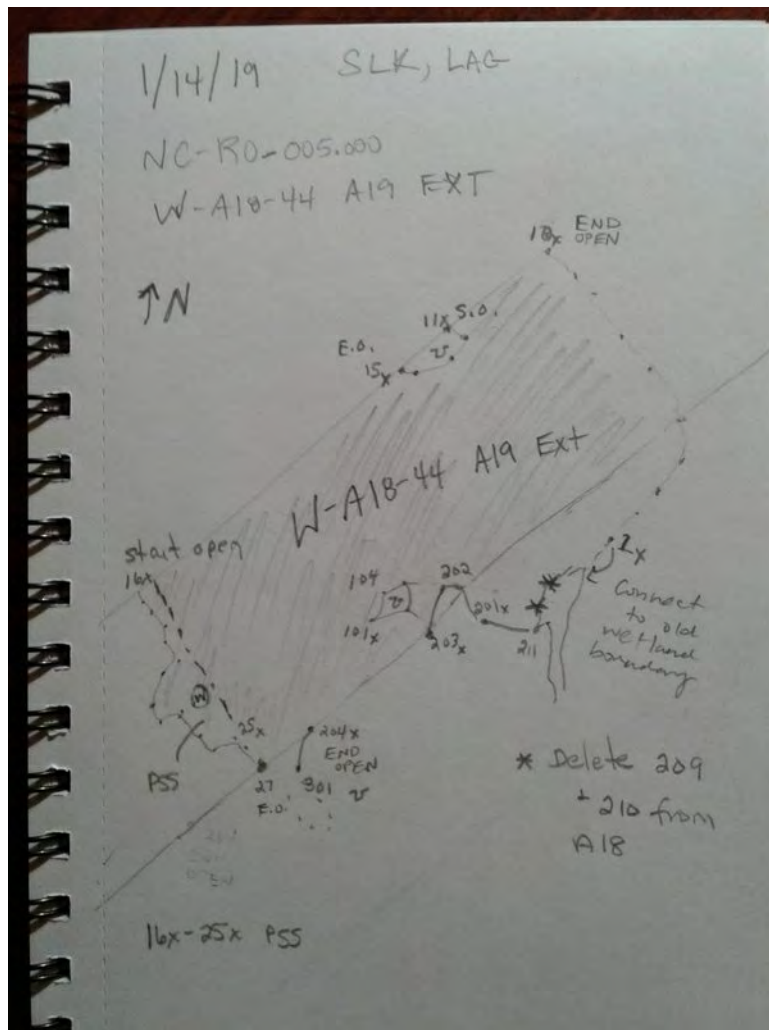 1/14/19 SLK, LAG
NC-RO-005.000
W-A18-44 A19 EXT
↑N
END
OPEN
11x S.O.
E.O.
15x
v
W-A18-44 A19 Ext
start open
16x
104
v
101x
202
201x
203x
211
2x
Connect
to old
wetland
boundary
W
25x
PSS
27
E.O.
204x
END
OPEN
301 v
* Delete 209
+ 210 from
A18
16x-25x PSS